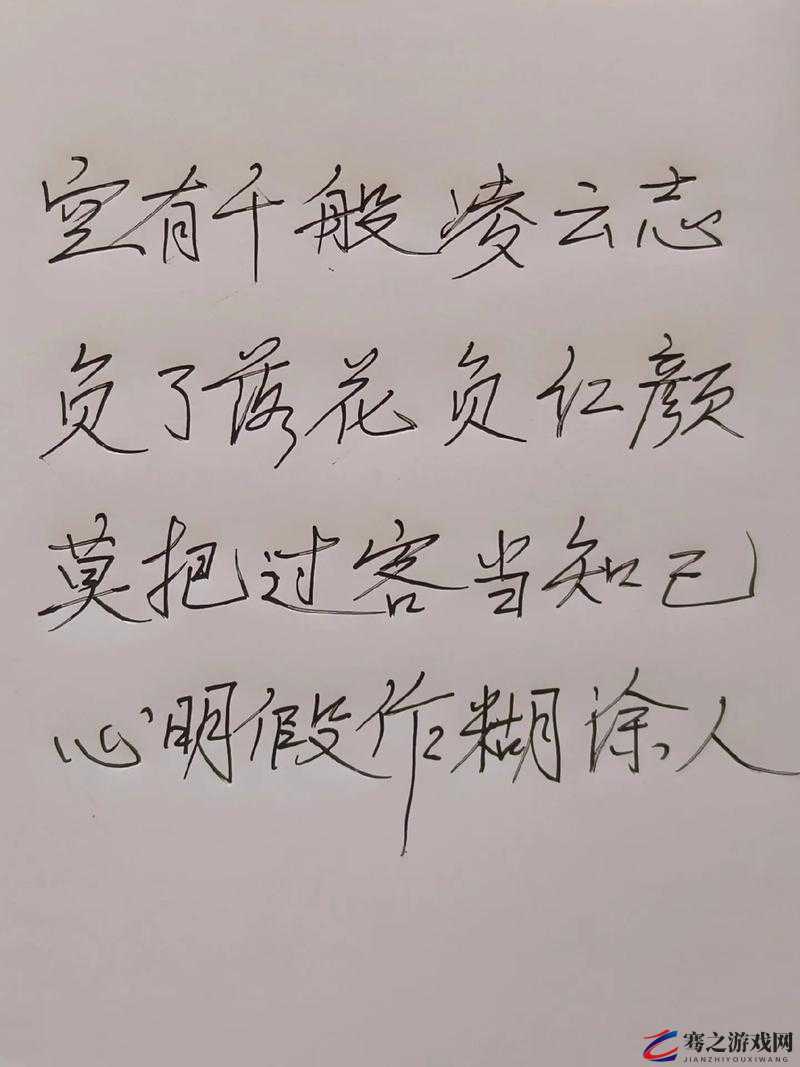 空有千般凌云志
负了落花负红颜
莫把过客当知己
心明假作糊涂人
骞之游戏网
JIANZHIYOUXIWANG